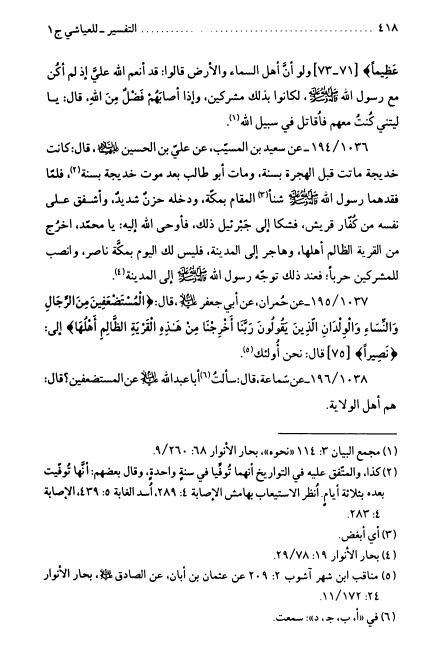 ٤١٨ .......................... التفسير ـ للعياشي ج١
عَظِيماً﴾ [٧١ـ٧٣] ولو أنَّ أهل السماء والأرض قالوا: قد أنعم الله عليَّ إذ لم أكُن
مع رسول الله ﷺ، لكانوا بذلك مشركين، وإذا أصابَهُمْ فَضْلٌ مِنَ اللهِ، قال: يا
ليتني كُنتُ معهم فأُقاتل في سبيل الله(١).
١٩٤/١٠٣٦ ـ عن سعيد بن المسيّب، عن عليّ بن الحسين ، قال: كانت
خديجة ماتت قبل الهجرة بسنة، ومات أبو طالب بعد موت خديجة بسنة(٢)، فلمّا
فقدهما رسول الله ﷺ شنأ(٣) المقام بمكّة، ودخله حزنٌ شديدٌ، وأشفق على
نفسه من كُفّار قريش، فشكا إلى جَبْرئيل ذلك، فأوحى الله إليه: يا محمّد، اخرُج
من القرية الظالم أهلها، وهاجر إلى المدينة، فليس لك اليوم بمكّة ناصر، وانصب
للمشركين حرباً؛ فعند ذلك توجّه رسول الله ﷺ إلى المدينة(٤).
١٩٥/١٠٣٧ ـ عن حُمران، عن أبي جعفر ، قال: ﴿الْمُسْتَضْعَفِينَ مِنَ الرِّجَالِ
وَالنِّسَاءِ وَالْوِلْدَانِ الَّذِينَ يَقُولُونَ رَبَّنَا أَخْرِجْنَا مِنْ هَـٰذِهِ الْقَرْيَةِ الظَّالِمِ أَهْلُهَا﴾ إلى:
﴿نَصِيراً﴾ [٧٥] قال: نحن أُولئك(٥).
١٩٦/١٠٣٨ ـ عن سَماعة، قال: سألتُ(٦) أبا عبدالله عن المستضعفين؟ قال:
هم أهل الولاية.
(١) مجمع البيان ٣: ١١٤ «نحوه»، بحار الأنوار ٦٨: ٩/٢٦٠.
(٢) كذا، والمتّفق عليه في التواريخ أنهما تُوفِّيا في سنةٍ واحدةٍ، وقال بعضهم: أنَّها تُوفِّيت
بعده بثلاثة أيام. اُنظر الاستيعاب بهامش الإصابة ٤: ٢٨٩، أُسد الغابة ٥: ٤٣٩، الإصابة
٤: ٢٨٣.
(٣) أي أبغض.
(٤) بحار الأنوار ١٩: ٢٩/٧٨.
(٥) مناقب ابن شهر آشوب ٢: ٢٠٩ عن عثمان بن أبان، عن الصادق ، بحار الأنوار
٢٤: ١١/١٧٢.
(٦) في «أ، ب، ج، د»: سمعت.